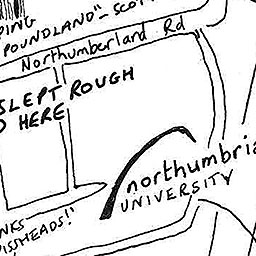 PING
POUNDLAND"- SCOT
Northumberland Rd
SLEPT ROUGH
HERE
northumbria
UNIVERSITY
NKS
ISSHEADS!"